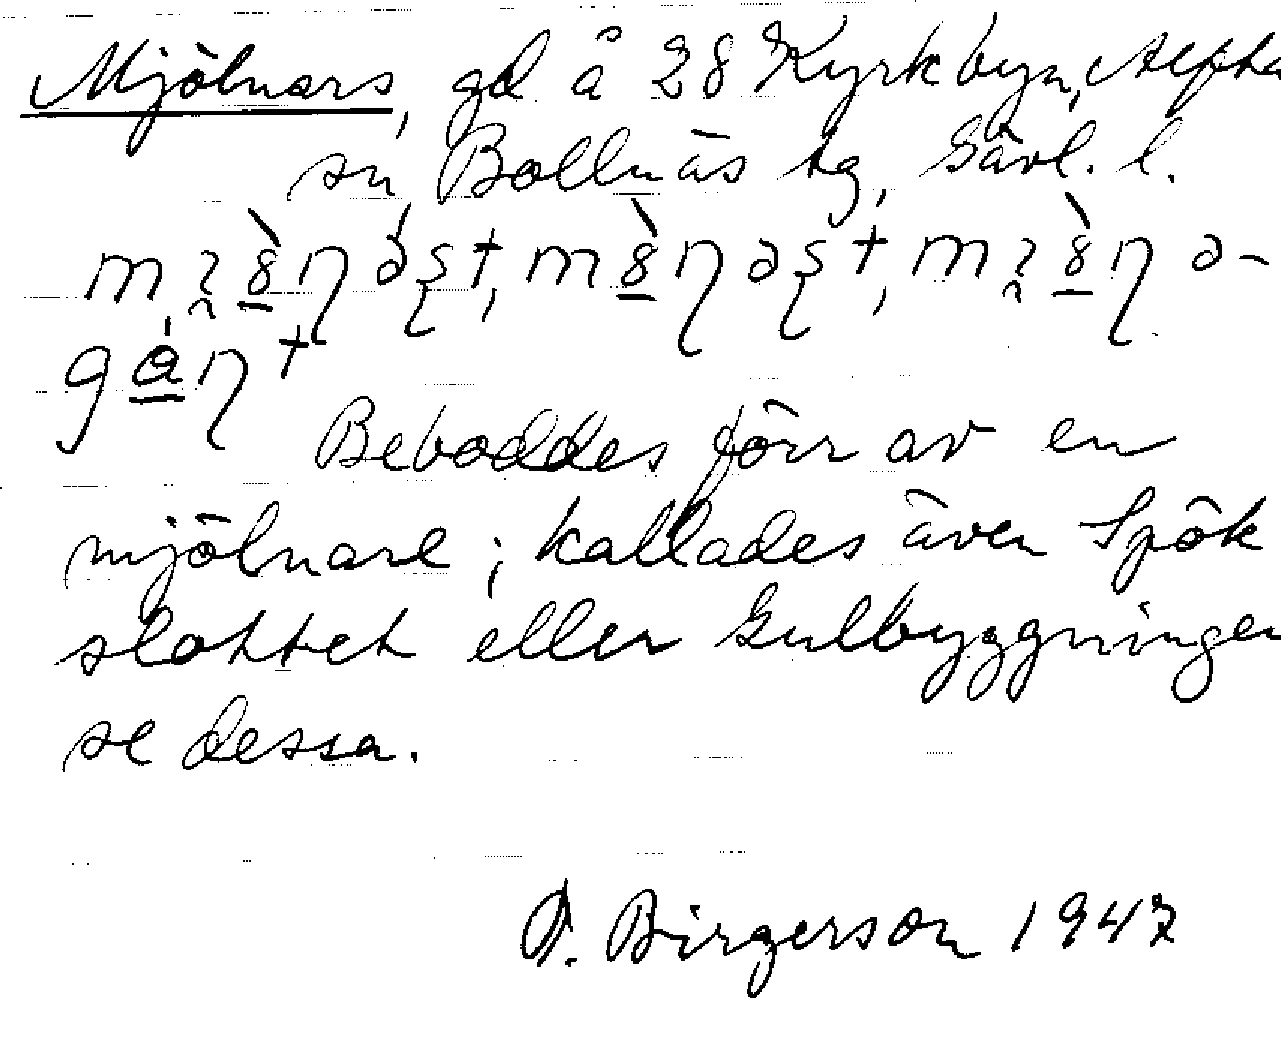 Mjölnars, gd å 28 Kyrkbyn, Alfta
sn, Bollnäs tg, Gävl. l.
Beboddes förr av en
mjölnare; kallades även Spök
slottet eller Gulbyggningen
se dessa.
Birgerson 1947